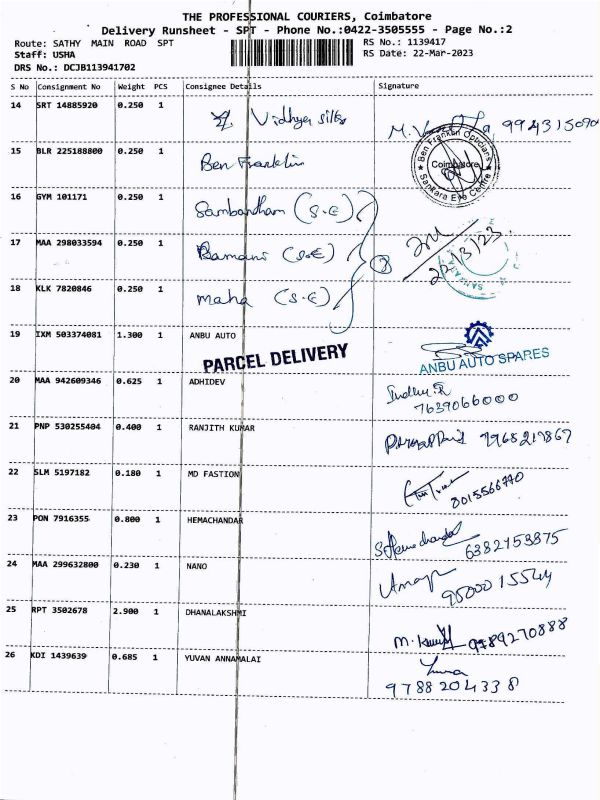 THE PROFESSIONAL COURIERS, Coimbatore
Delivery Runsheet - SPT - Phone No.:0422-3505555 - Page No.:2
Route: SATHY MAIN ROAD SPT RS No.: 1139417
Staff: USHA RS Date: 22-Mar-2023
DRS No.: DCJB113941702
S No Consignment No Weight PCS Consignee Details Signature
14 SRT 14885920 0.250 1 Vidhya Silks
15 BLR 225188800 0.250 1 Ben Franklin
Ben Franklin Opticians
Coimbatore
Sankara Eye Centre
16 GYM 101171 0.250 1 Sambandham (S.E)
17 MAA 298033594 0.250 1 Ramani (S.E) 3 22/3/23
18 KLK 7820846 0.250 1 Maha (S.E)
19 IXM 503374081 1.300 1 ANBU AUTO
PARCEL DELIVERY ANBU AUTO SPARES
20 MAA 942609346 0.625 1 ADHIDEV
7639066000
21 PNP 530255404 0.400 1 RANJITH KUMAR
22 SLM 5197182 0.180 1 MD FASTION
8015566770
23 PON 7916355 0.800 1 HEMACHANDAR
6382153875
24 MAA 299632800 0.230 1 NANO
25 RPT 3502678 2.900 1 DHANALAKSHMI
9789270888
26 KDI 1439639 0.685 1 YUVAN ANNAMALAI
9788204338